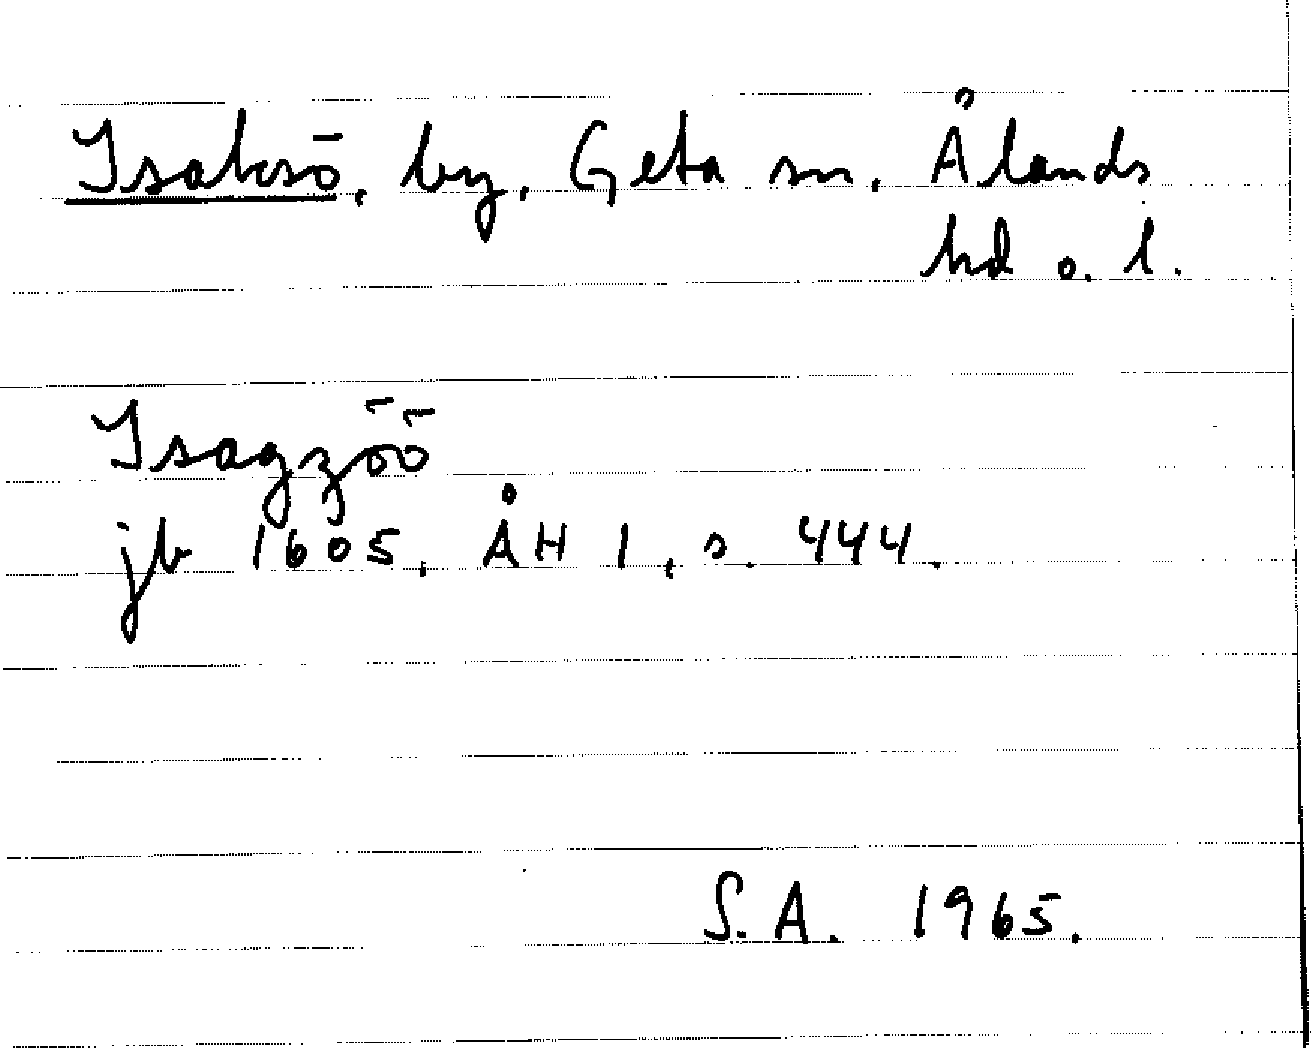 Isaksö, by, Geta sn, Ålands
hd o. l.
Isagzöö
jb 1605, ÅH 1, s. 444.
S.A. 1965.